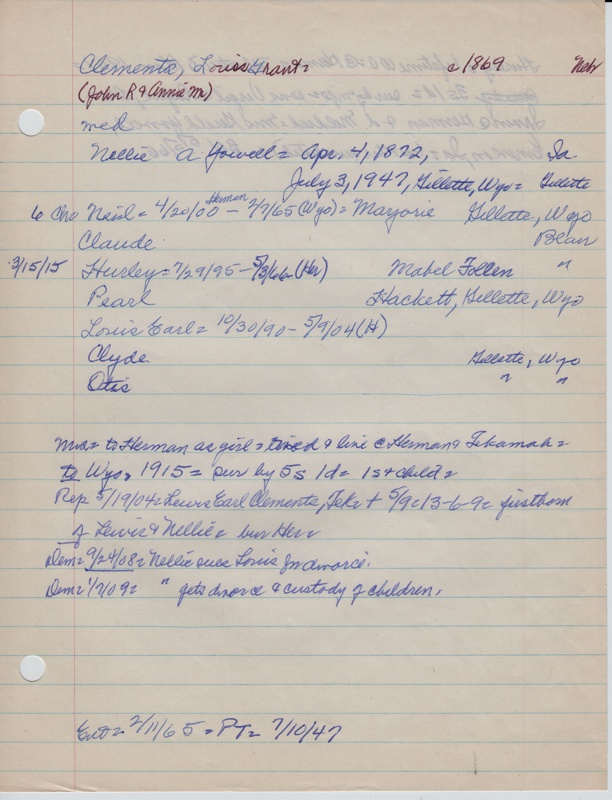 Clements, Louis Grant = c 1869 Nebr
(John R & Annie M)
med
Nellie A Yowell = Apr. 4, 1872, Ia
July 3, 1947, Gillette, Wyo = Gillette
6 Chn Neil = 4/20/00 Herman - 2/7/65 (Wyo) = Marjorie Gillette, Wyo
Claude Blair
3/15/15 Hurley = 7/29/95 - (Her) Mabel Follen "
Pearl Hackett, Gillette, Wyo
Louis Earl = 10/30/90 - 5/9/04 (H)
Clyde Gillette, Wyo
Otis " "
Mrs = to Herman as girl = & live @ Herman & Tekamah =
to Wyo, 1915 = sur by 5s 1d = 1s + child =
Rep 5/19/04 = Lewis Earl Clements, Tek = + 5/9 = 13-6-9 = firstborn
of Lewis & Nellie = bur Her =
Dem = 9/24/08 = Nellie sues Louis for divorce.
Dem = 1/7/09 = " gets divorce & custody of children.
Ent = 2/11/65 = PT = 7/10/47